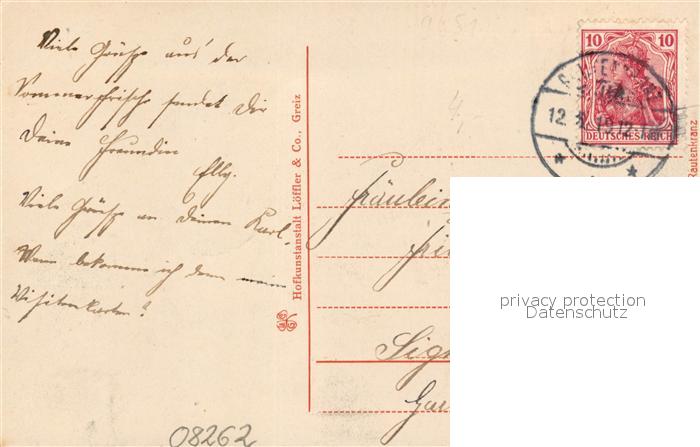 Viele Grüße aus der
Sommerfrische sendet Dir
Deine Freundin
Elly.
Viele Grüße an Deinen Karl.
Wann bekomme ich denn meine
Visitenkarten?
Hofkunstanstalt Löffler & Co., Greiz
10 10
DEUTSCHES REICH
12. 12
Rautenkranz
Fräulein
Sig
privacy protection
Datenschutz
08262